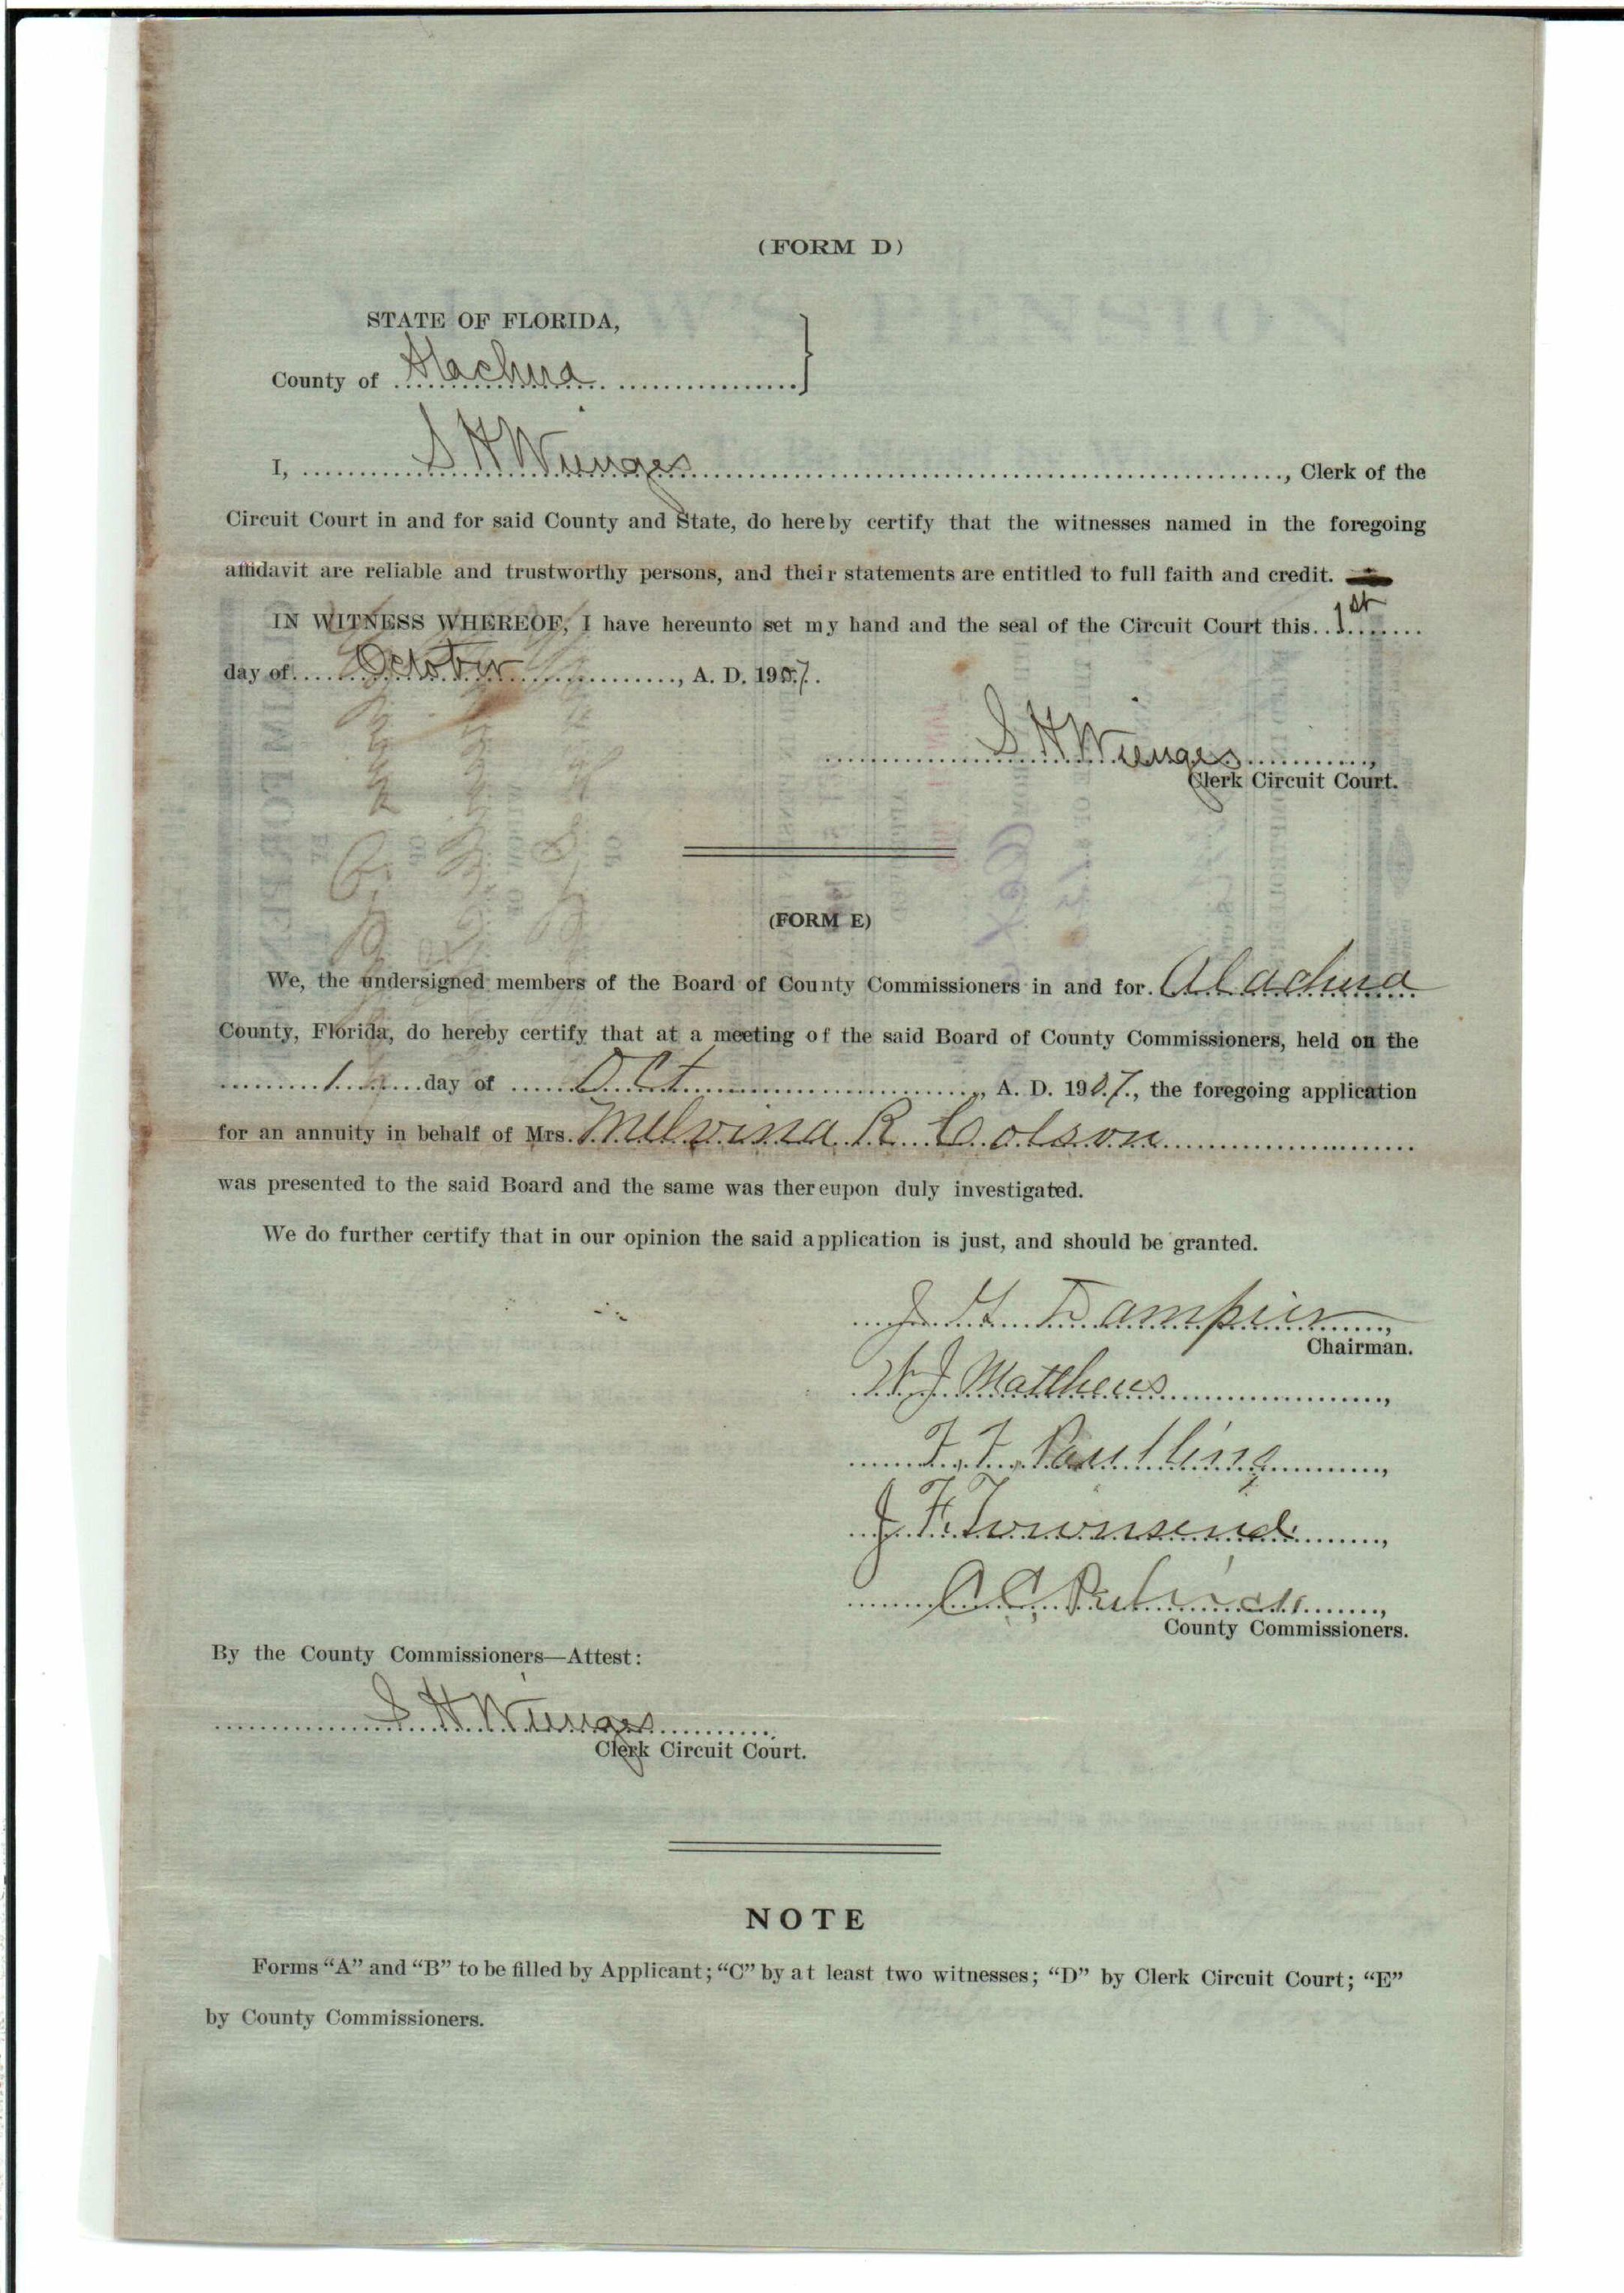 (FORM D)
STATE OF FLORIDA,
County of Alachua
I, S H Wienges, Clerk of the
Circuit Court in and for said County and State, do hereby certify that the witnesses named in the foregoing
affidavit are reliable and trustworthy persons, and their statements are entitled to full faith and credit.
IN WITNESS WHEREOF, I have hereunto set my hand and the seal of the Circuit Court this 1st
day of October, A. D. 1907.
S H Wienges,
Clerk Circuit Court.
(FORM E)
We, the undersigned members of the Board of County Commissioners in and for Alachua
County, Florida, do hereby certify that at a meeting of the said Board of County Commissioners, held on the
1 day of Oct, A. D. 1907., the foregoing application
for an annuity in behalf of Mrs. Melvina R. Colson
was presented to the said Board and the same was thereupon duly investigated.
We do further certify that in our opinion the said application is just, and should be granted.
J. G. Dampier,
Chairman.
W J Matthews,
F. F. Paultling,
J. F. Townsend,
C C
County Commissioners.
By the County Commissioners—Attest:
S H Wienges
Clerk Circuit Court.
NOTE
Forms “A” and “B” to be filled by Applicant; “C” by at least two witnesses; “D” by Clerk Circuit Court; “E”
by County Commissioners.